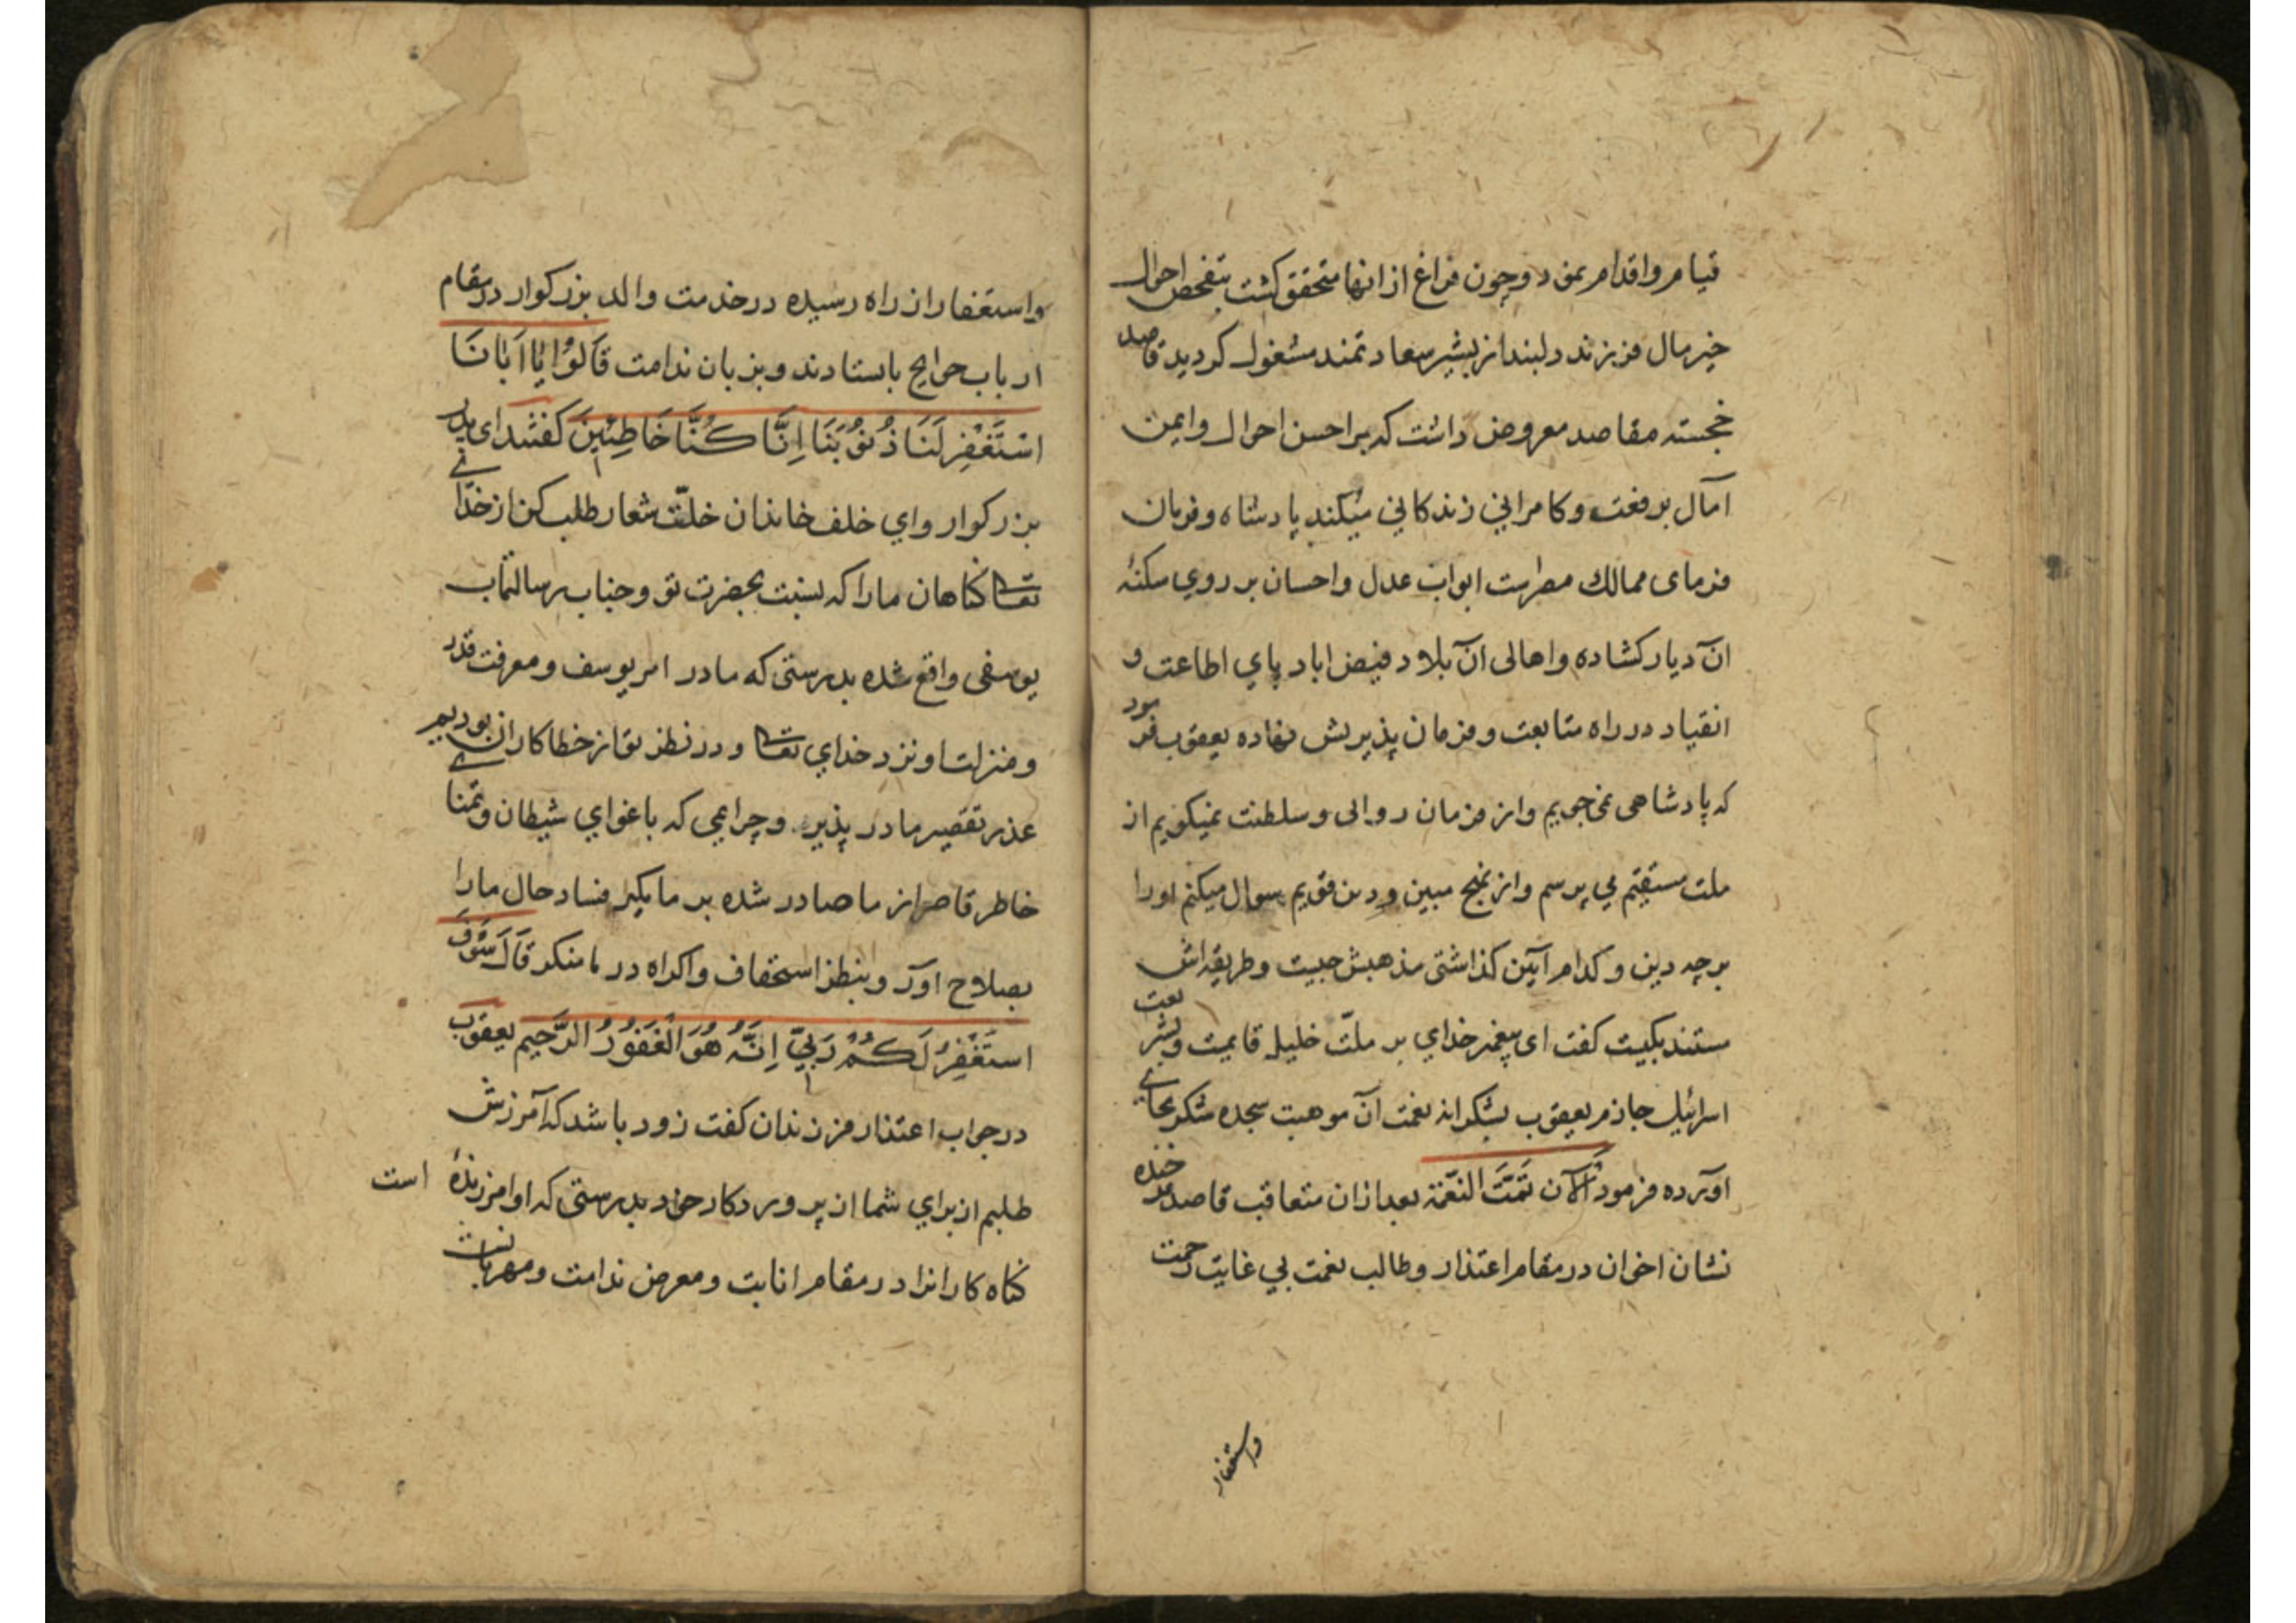 قیام و اقدام نمود و چون فراغ از انها متحقق کشت بتفحص احوال
خیر مال فرزند دلبند از بشیر سعادتمند مشغول کردید قاصد
خجسته مقاصد معروض داشت که بر احسن احوال و ایمن
آمال برفعت و کامرانی زندکانی میکند پادشاه و فرمان
فرمای ممالک مصر است ابواب عدل و احسان بر روی سکنهٔ
آن دیار کشاده و اهالی آن بلاد فیض اباد پای اطاعت و
انقیاد در راه متابعت و فرمان پذیریش نهاده یعقوب فرمود
که پادشاهی نمی جویم و از فرمان روالی و سلطنت نمیکویم از
ملت مستقیم می پرسم و از نهج مبین و دین قویم سوال میکنم او را
بر چه دین و کدام آیین کذاشتی مذهبش چیست و طریقه اش
مستند بکیست کفت ای پیغمبر خدای بر ملّت خلیل قایمست و بشریعت
اسرائیل جازم یعقوب بشکرانه نعمت آن موهبت سجده شکر بجای
آورده فرمود الآن تَمَّتَ النّعمة بعد ازان متعاقب قاصد خنده
نشان اخوان در مقام اعتذار و طالب نعمت بی غایت رحمت
واستغفار
واستغفار از راه رسیده در خدمت والد بزرکوار در مقام
ارباب حوایج بایستادند و بزبان ندامت قَالُوْا یَا اَبَانَا
اسْتَغْفِرْ لَنَا ذُنُوْبَنَا اِنَّا کُنَّا خَاطِئِیْنَ کفتند ای پدر
بزرکوار وای خلف خاندان خلّت شعار طلب کن از خدای
تعالی کناهان ما را که نسبت بحضرت تو و جناب رسالتماب
یوسفی واقع شده بدرستی که ما در امر یوسف و معرفت قدر
و منزلت او نزد خدای تعالی و در نظر تو از خطاکاران بودیم
عذر تقصیر ما در پذیر و جرایمی که باغوای شیطان و تمنای
خاطر قاصر از ما صادر شده بر ما مکیر فساد حال ما را
بصلاح آور و بنظر استخفاف و اکراه در ما منکر قَالَ سَوْفَ
اسْتَغْفِرُ لَکُمْ رَبِّیْ اِنَّهُ هُوَ الْغَفُوْرُ الرَّحِیم یعقوب
در جواب اعتذار فرزندان کفت زود باشد که آمرزش
طلبم از برای شما از پروردکار خود بدرستی که او امرزندهٔ است
کناه کارانرا در مقام انابت و معرض ندامت و مهربانست